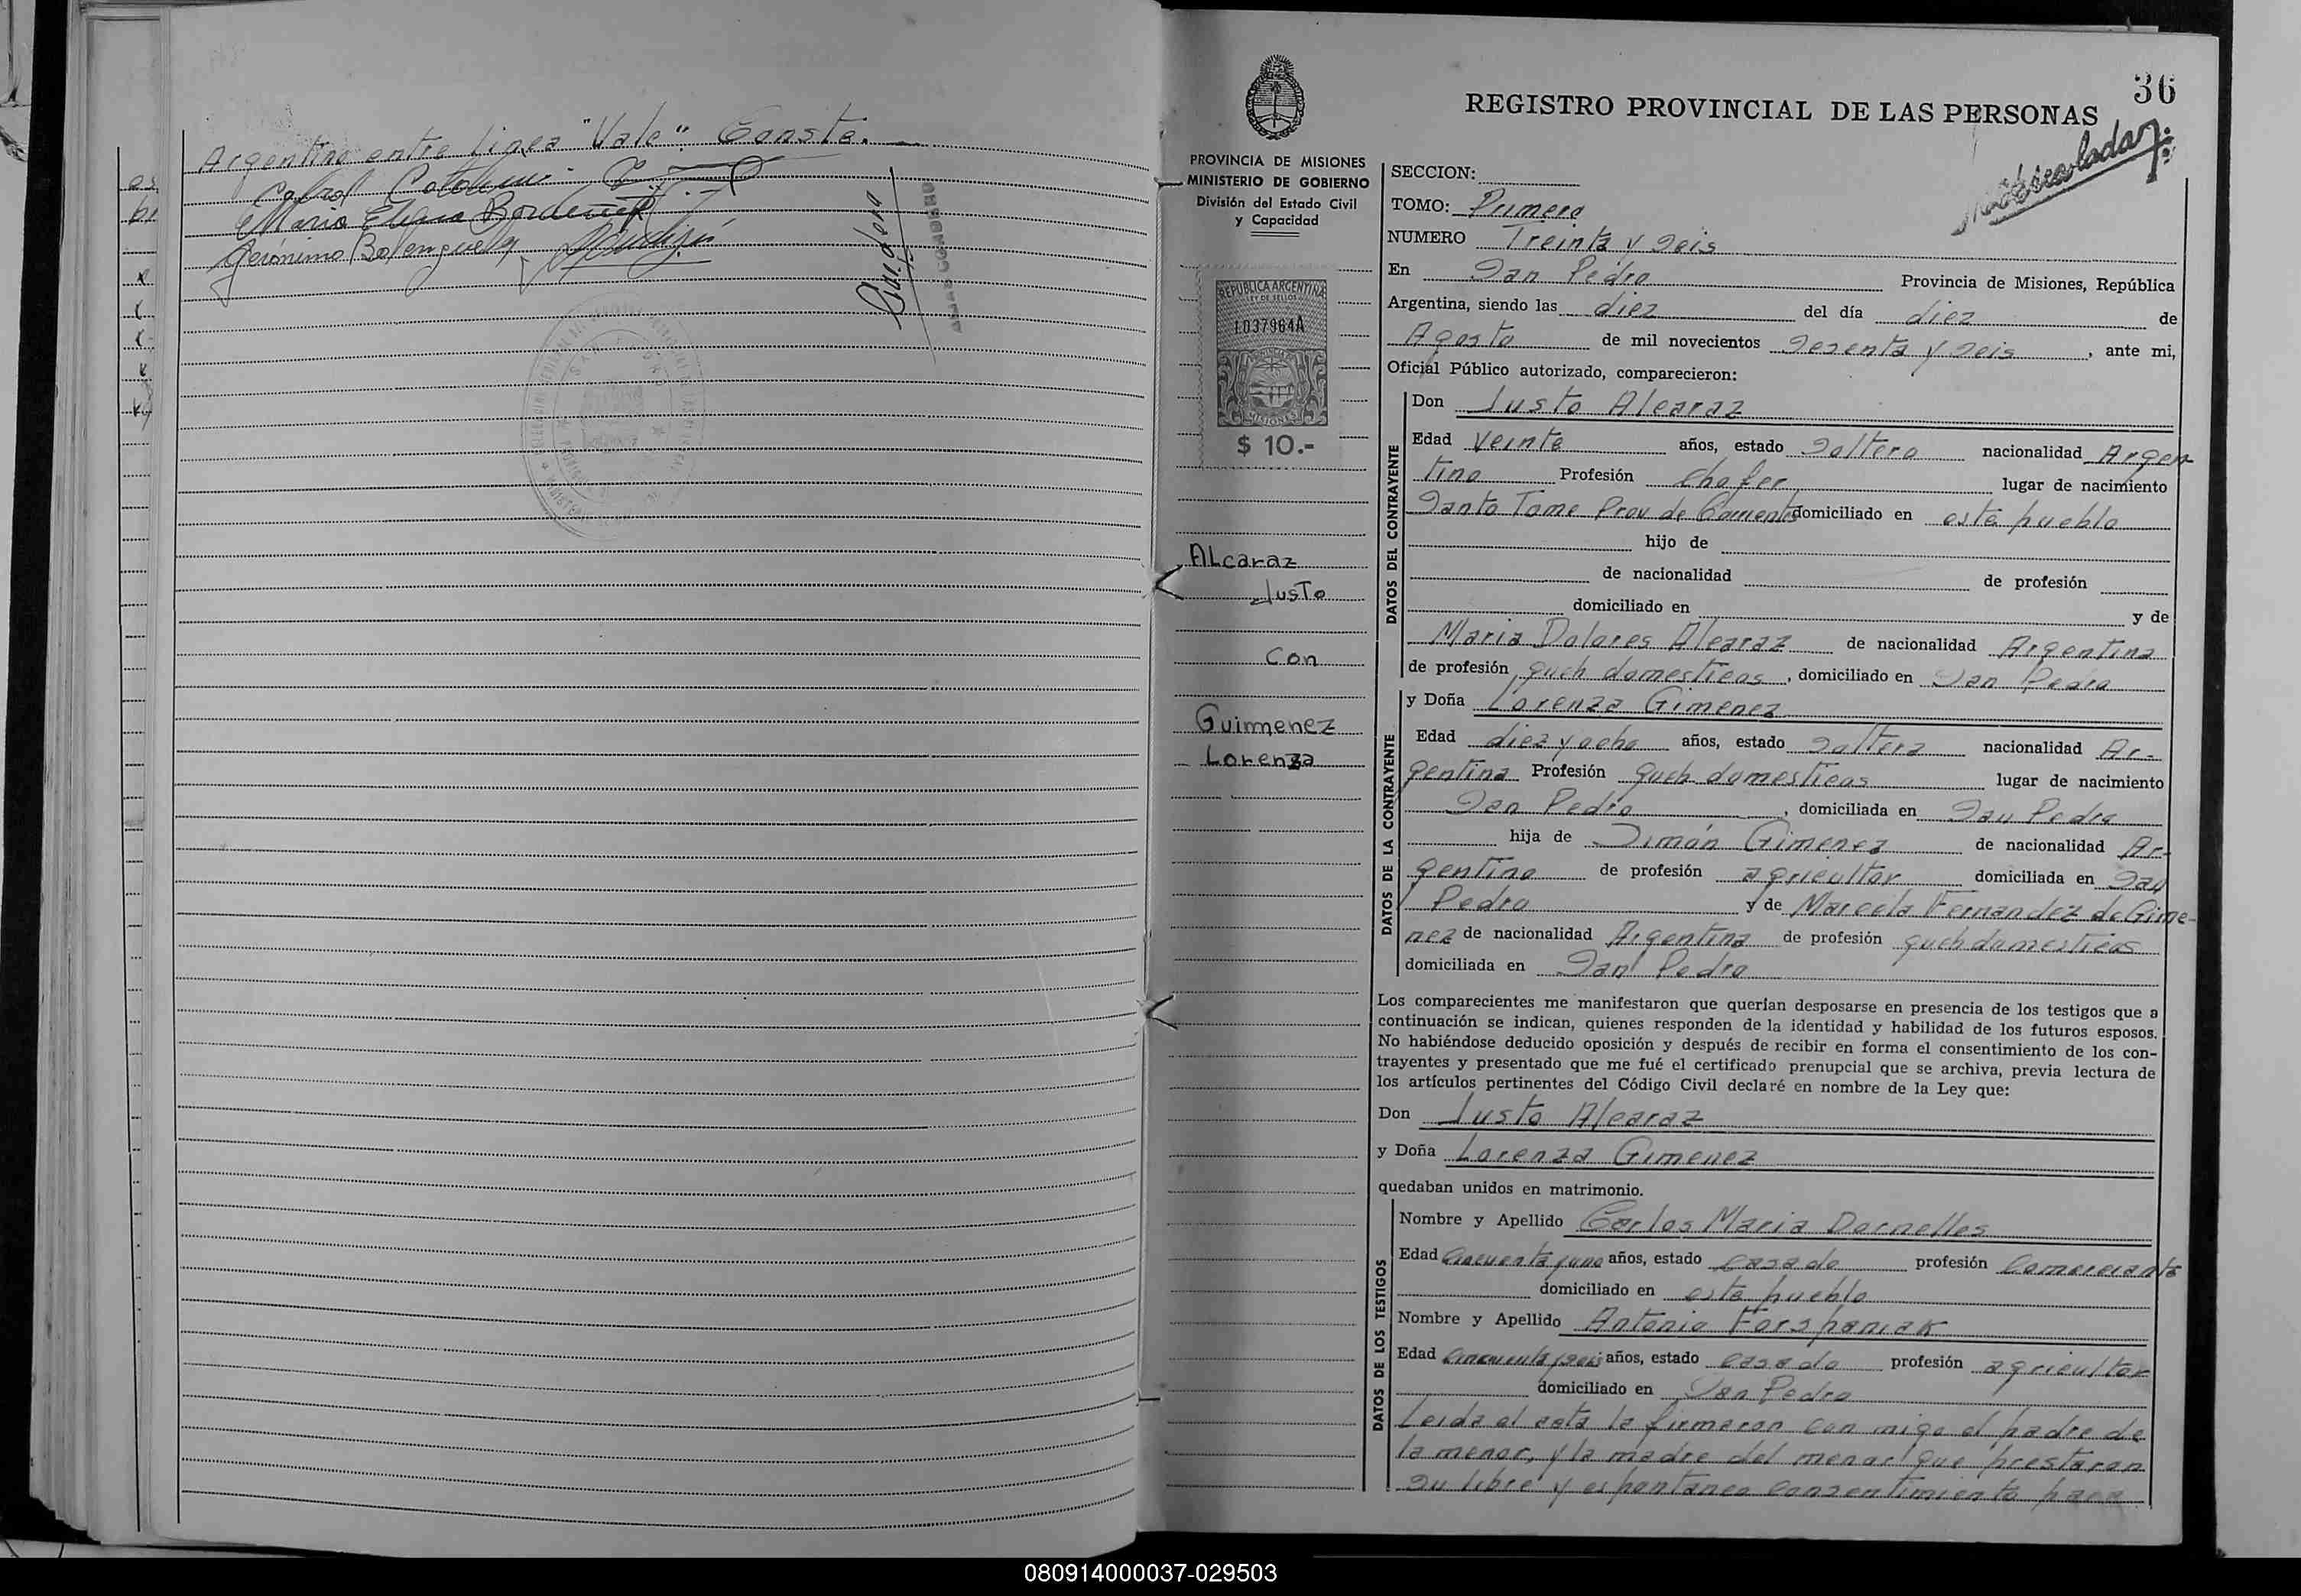 Argentino entre linea "Vale". Conste.
Jerónimo
36
REGISTRO PROVINCIAL DE LAS PERSONAS
PROVINCIA DE MISIONES
MINISTERIO DE GOBIERNO
División del Estado Civil
y Capacidad
REPUBLICA ARGENTINA
LEY DE SELLOS
1037964A
MISIONES
$ 10.-
ALcaraz
Justo
Con
Guimenez
Lorenza
SECCION:
TOMO: Primero
NUMERO Treinta y Seis
En San Pedro Provincia de Misiones, República
Argentina, siendo las diez del día diez de
Agosto de mil novecientos Sesenta y Seis, ante mi,
Oficial Público autorizado, comparecieron:
DATOS DEL CONTRAYENTE
Don Justo Alcaraz
Edad Veinte años, estado Soltero nacionalidad Argen
tino Profesión Chofer lugar de nacimiento
Santo Tome Prov de Corrientes domiciliado en este pueblo
hijo de
de nacionalidad de profesión
domiciliado en y de
Maria Dolores Alcaraz de nacionalidad Argentina
de profesión queh domesticos, domiciliado en San Pedro
DATOS DE LA CONTRAYENTE
y Doña Lorenza Gimenez
Edad diez y ocho años, estado Soltera nacionalidad Ar-
gentina Profesión queh domesticos lugar de nacimiento
San Pedro, domiciliada en San Pedro
hija de Simón Gimenez de nacionalidad Ar-
gentino de profesión agricultor domiciliada en San
Pedro y de Marcela Fernandez de Gime-
nez de nacionalidad Argentina de profesión queh domesticos
domiciliada en San Pedro
Los comparecientes me manifestaron que querían desposarse en presencia de los testigos que a
continuación se indican, quienes responden de la identidad y habilidad de los futuros esposos.
No habiéndose deducido oposición y después de recibir en forma el consentimiento de los con-
trayentes y presentado que me fué el certificado prenupcial que se archiva, previa lectura de
los artículos pertinentes del Código Civil declaré en nombre de la Ley que:
Don Justo Alcaraz
y Doña Lorenza Gimenez
quedaban unidos en matrimonio.
DATOS DE LOS TESTIGOS
Nombre y Apellido Carlos Maria Dornelles
Edad Cincuenta y uno años, estado casado profesión Comerciante
domiciliado en este pueblo
Nombre y Apellido Antonio Forspaniak
Edad Cincuenta y seis años, estado casado profesión agricultor
domiciliado en San Pedro
Leida el acta la firmaron con migo el padre de
la menor, y la madre del menor que prestaron
su libre y espontaneo consentimiento para
080914000037-029503